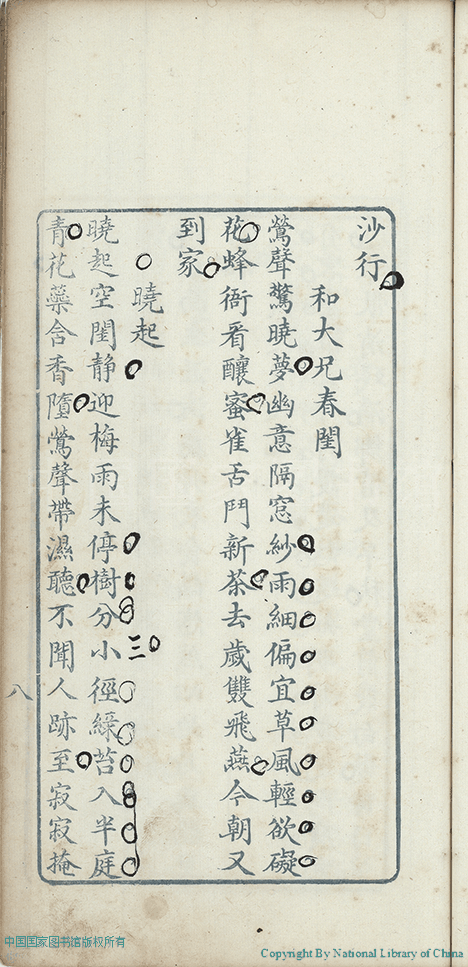 沙行
和大兄春閨
鶯聲驚曉夢幽意隔窓紗雨細偏宜草風輕欲礙
花蜂衙看釀蜜雀舌鬥新茶去歲雙飛燕今朝又
到家
曉起
曉起空閨静迎梅雨未停樹分小徑綠苔入半庭
三
青花藥含香墮鶯聲帶濕聽不聞人跡至寂寂掩
八
中国国家图书馆版权所有
Copyright By National Library of China